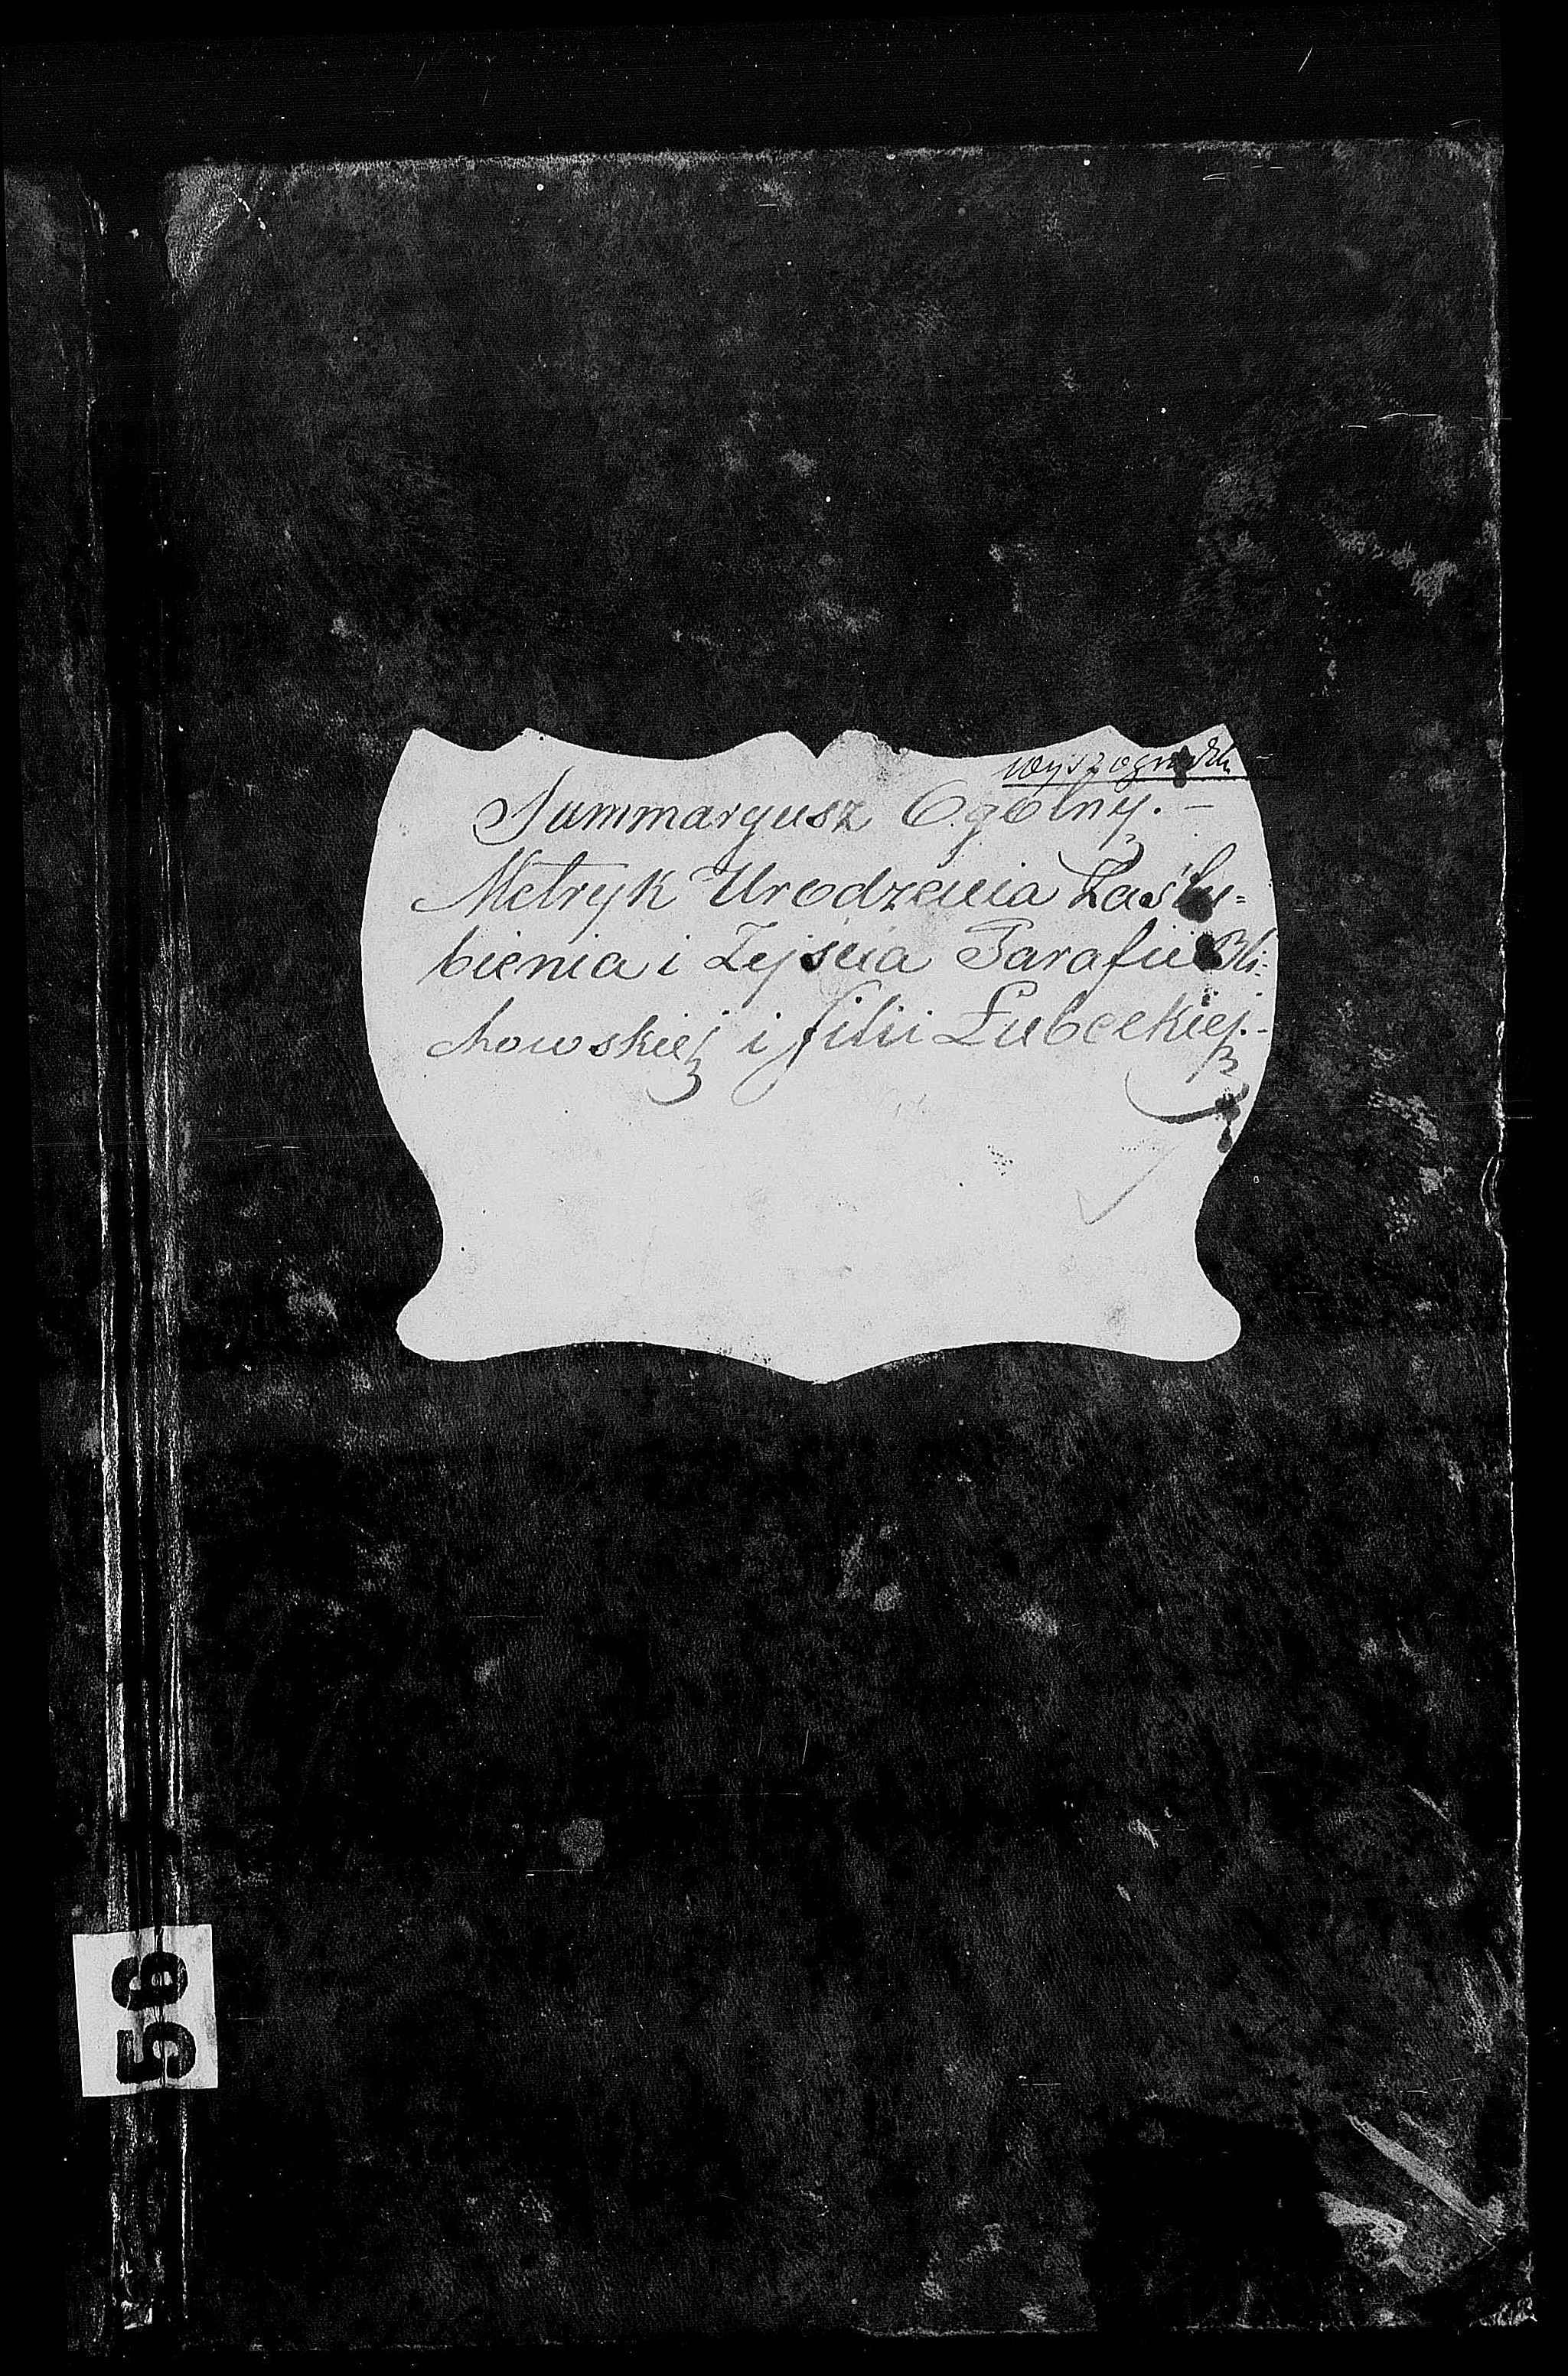 Wyszogrodzki
Summaryusz Ogolny. –
Metryk Urodzenia Zaślu=
bienia i Zejscia Parafii Bli=
chowskiej i filii Łubeckiej. –
56